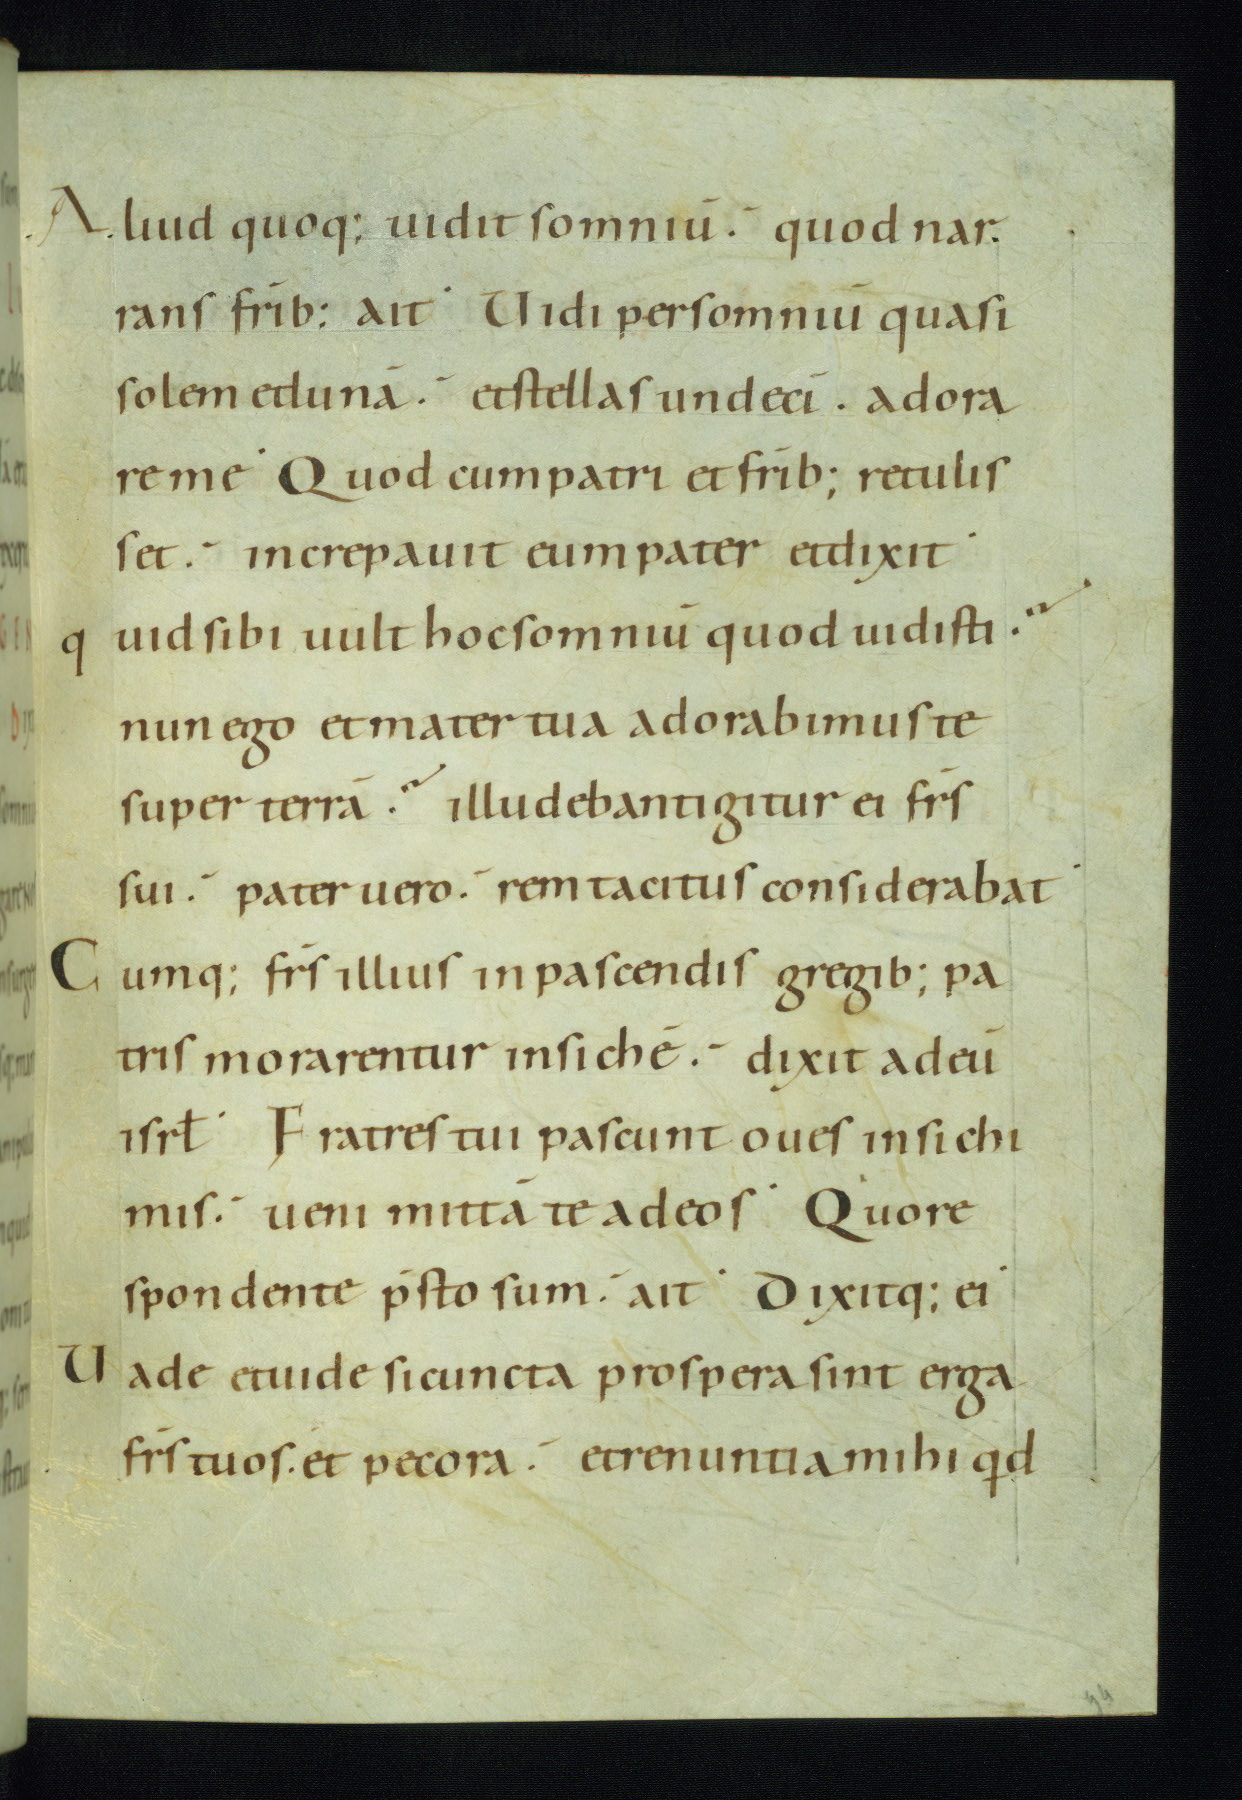 Aliud quoq; uidit somniū. quod nar
rans frib; ait Uidi per somniū quasi
solem et lunā. et stellas undecī. adora
re me Quod cum patri et frib; retulis
set. increpauit eum pater et dixit
quid sibi uult hoc somniū quod uidisti.
nun ego et mater tua adorabimus te
super terrā. illudebant igitur ei frs̄
sui. pater uero. rem tacitus considerabat
Cumq; frs̄ illius in pascendis gregib; pa
tris morarentur in sichē. dixit ad eū
isrł Fratres tui pascunt oues in sichi
mis. ueni mittā te ad eos Quo re
spondente p̄sto sum. ait Dixitq; ei
Uade et uide si cuncta prospera sint erga
frs̄ tuos. et pecora. et renuntia mihi qd